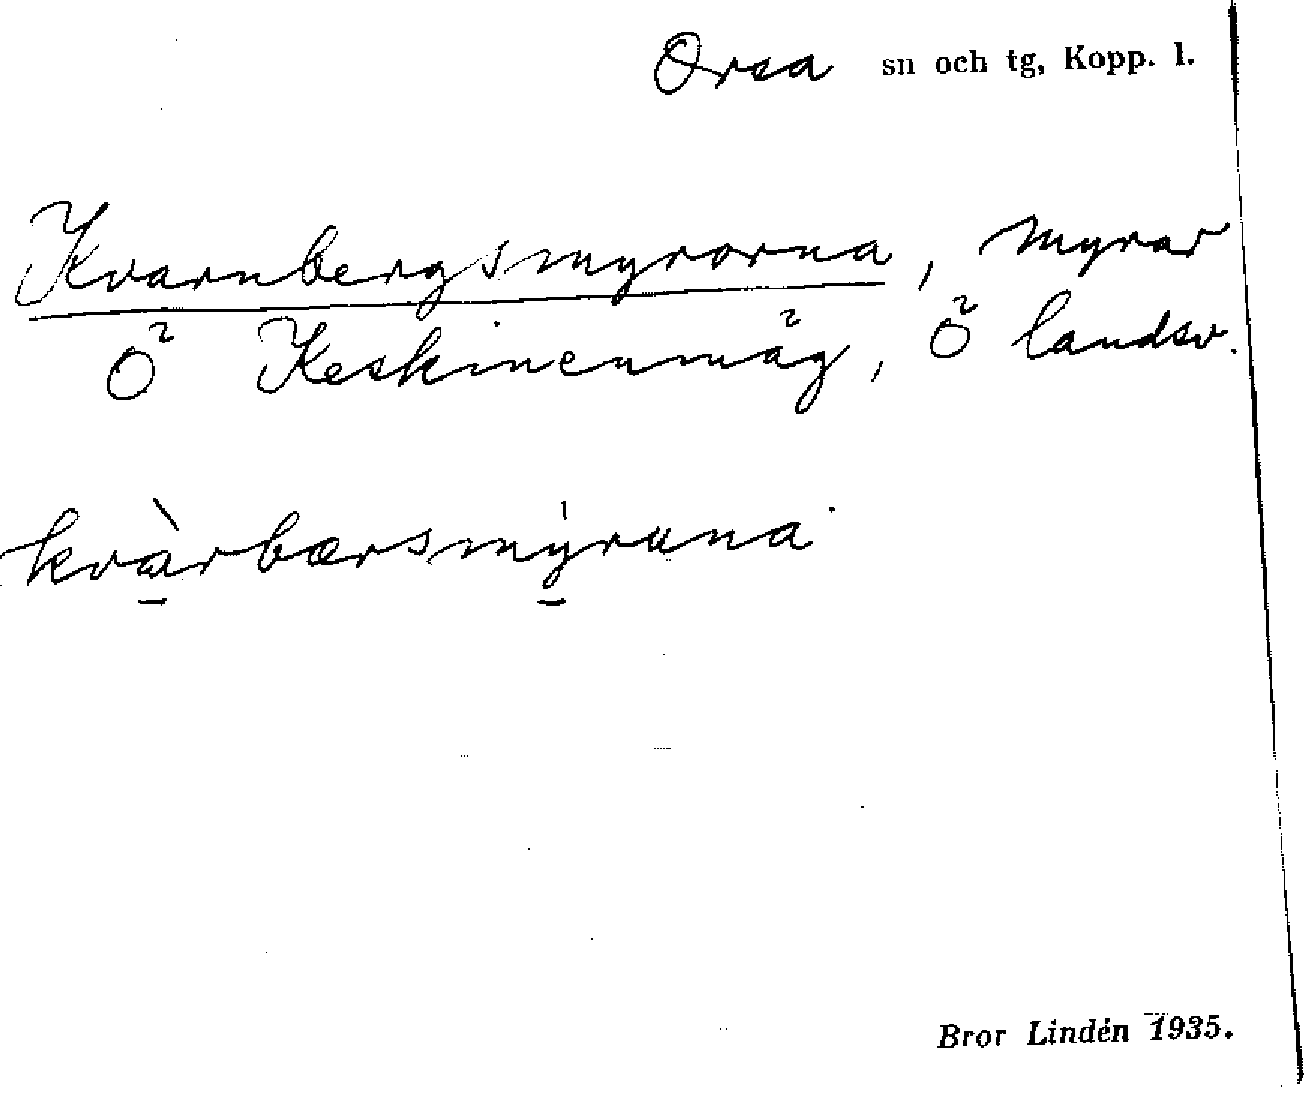 Orsa sn och tg, Kopp. l.
Kvarnbergsmyrorna, myrar
Ö Keskinenmäg, Ö landsv.
kvàrbærsmýruna
Bror Lindén 1935.